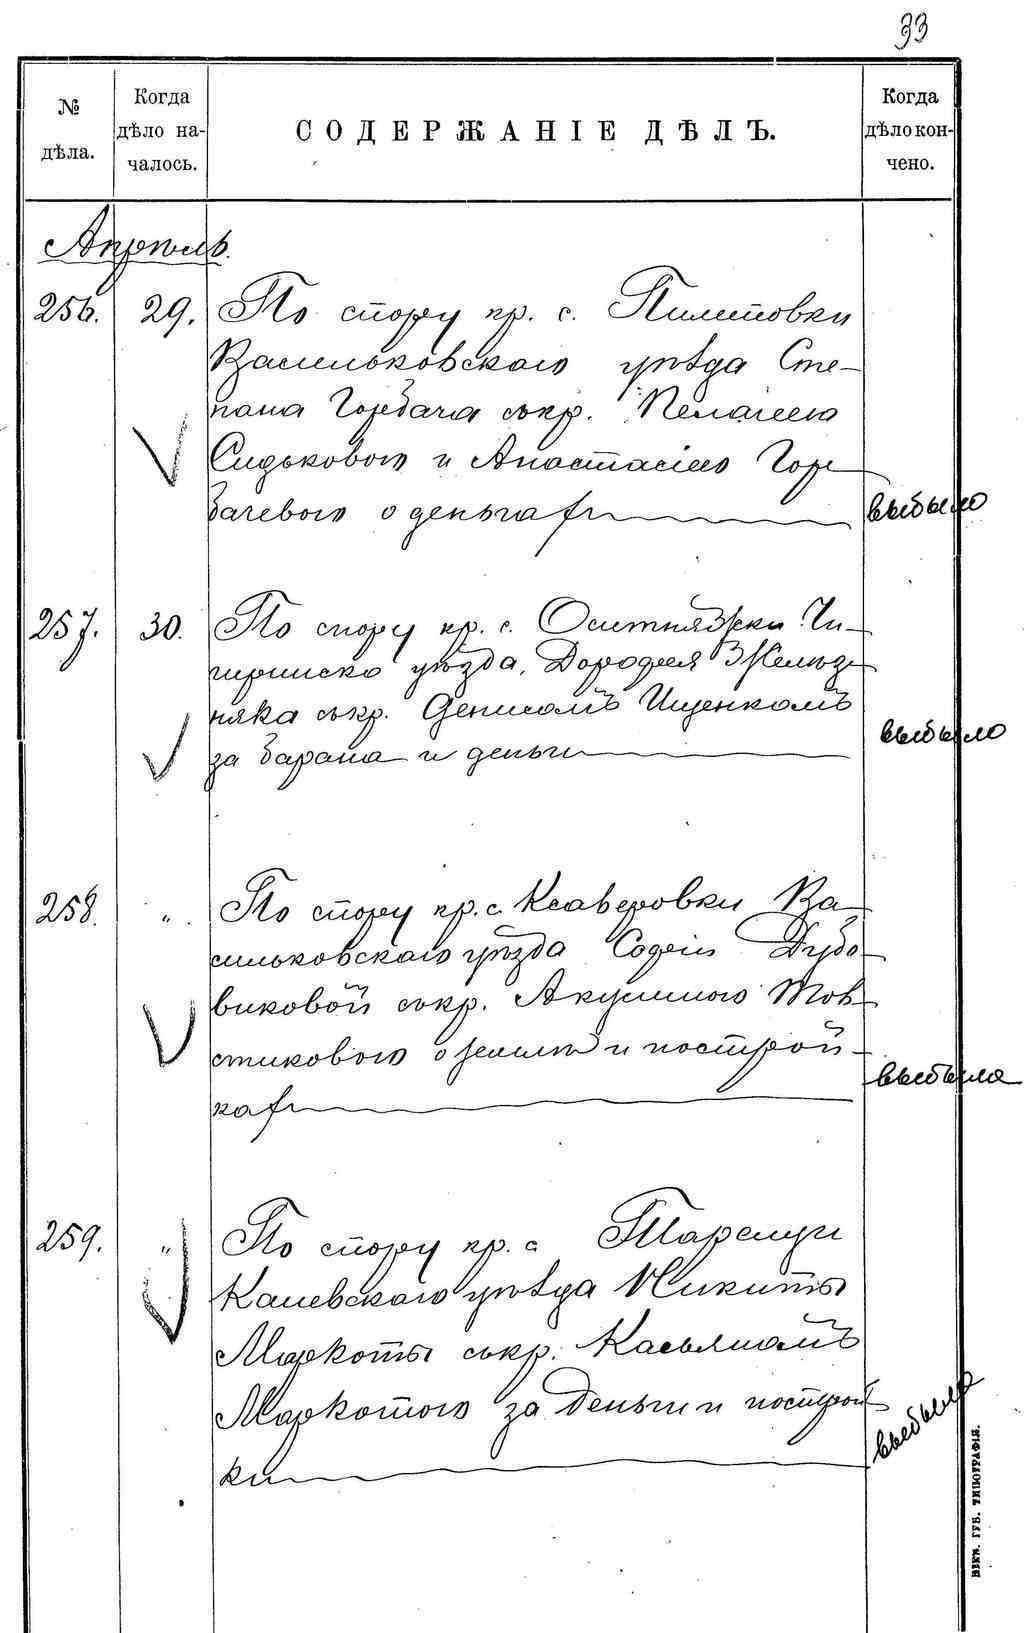 33
№ дѣла.
Когда дѣло началось.
СОДЕРЖАНІЕ ДѢЛЪ.
Когда дѣло кончено.
Апрѣль.
256. 29. По спору кр. с. Пилиповки
Васильковскаго уѣзда Сте-
пана Горбача съ кр. Пелагеею
Сидьковою и Анастасіею Гор
бачевою о деньгах выбыло
257. 30. По спору кр. с. Оситняжки Чи-
гиринско уѣзда, Дорофея Желѣз
няка съ кр. Денисомъ Ищенкомъ
за барана и деньги выбыло
258. " По спору кр. с. Ксаверовки Ва
сильковскаго уѣзда Софіи Дубо
виковой съ кр. Акулиною Тов
стиковою о землѣ и построй-
ках выбыла
259. " По спору кр. с Тарсуги
Каневскаго уѣзда Никиты
Маркоты съ кр. Касьяномъ
Маркотою за деньги и построй
ки выбыла
ВІКИ. ГУБ. ТИПОГРАФІЯ.